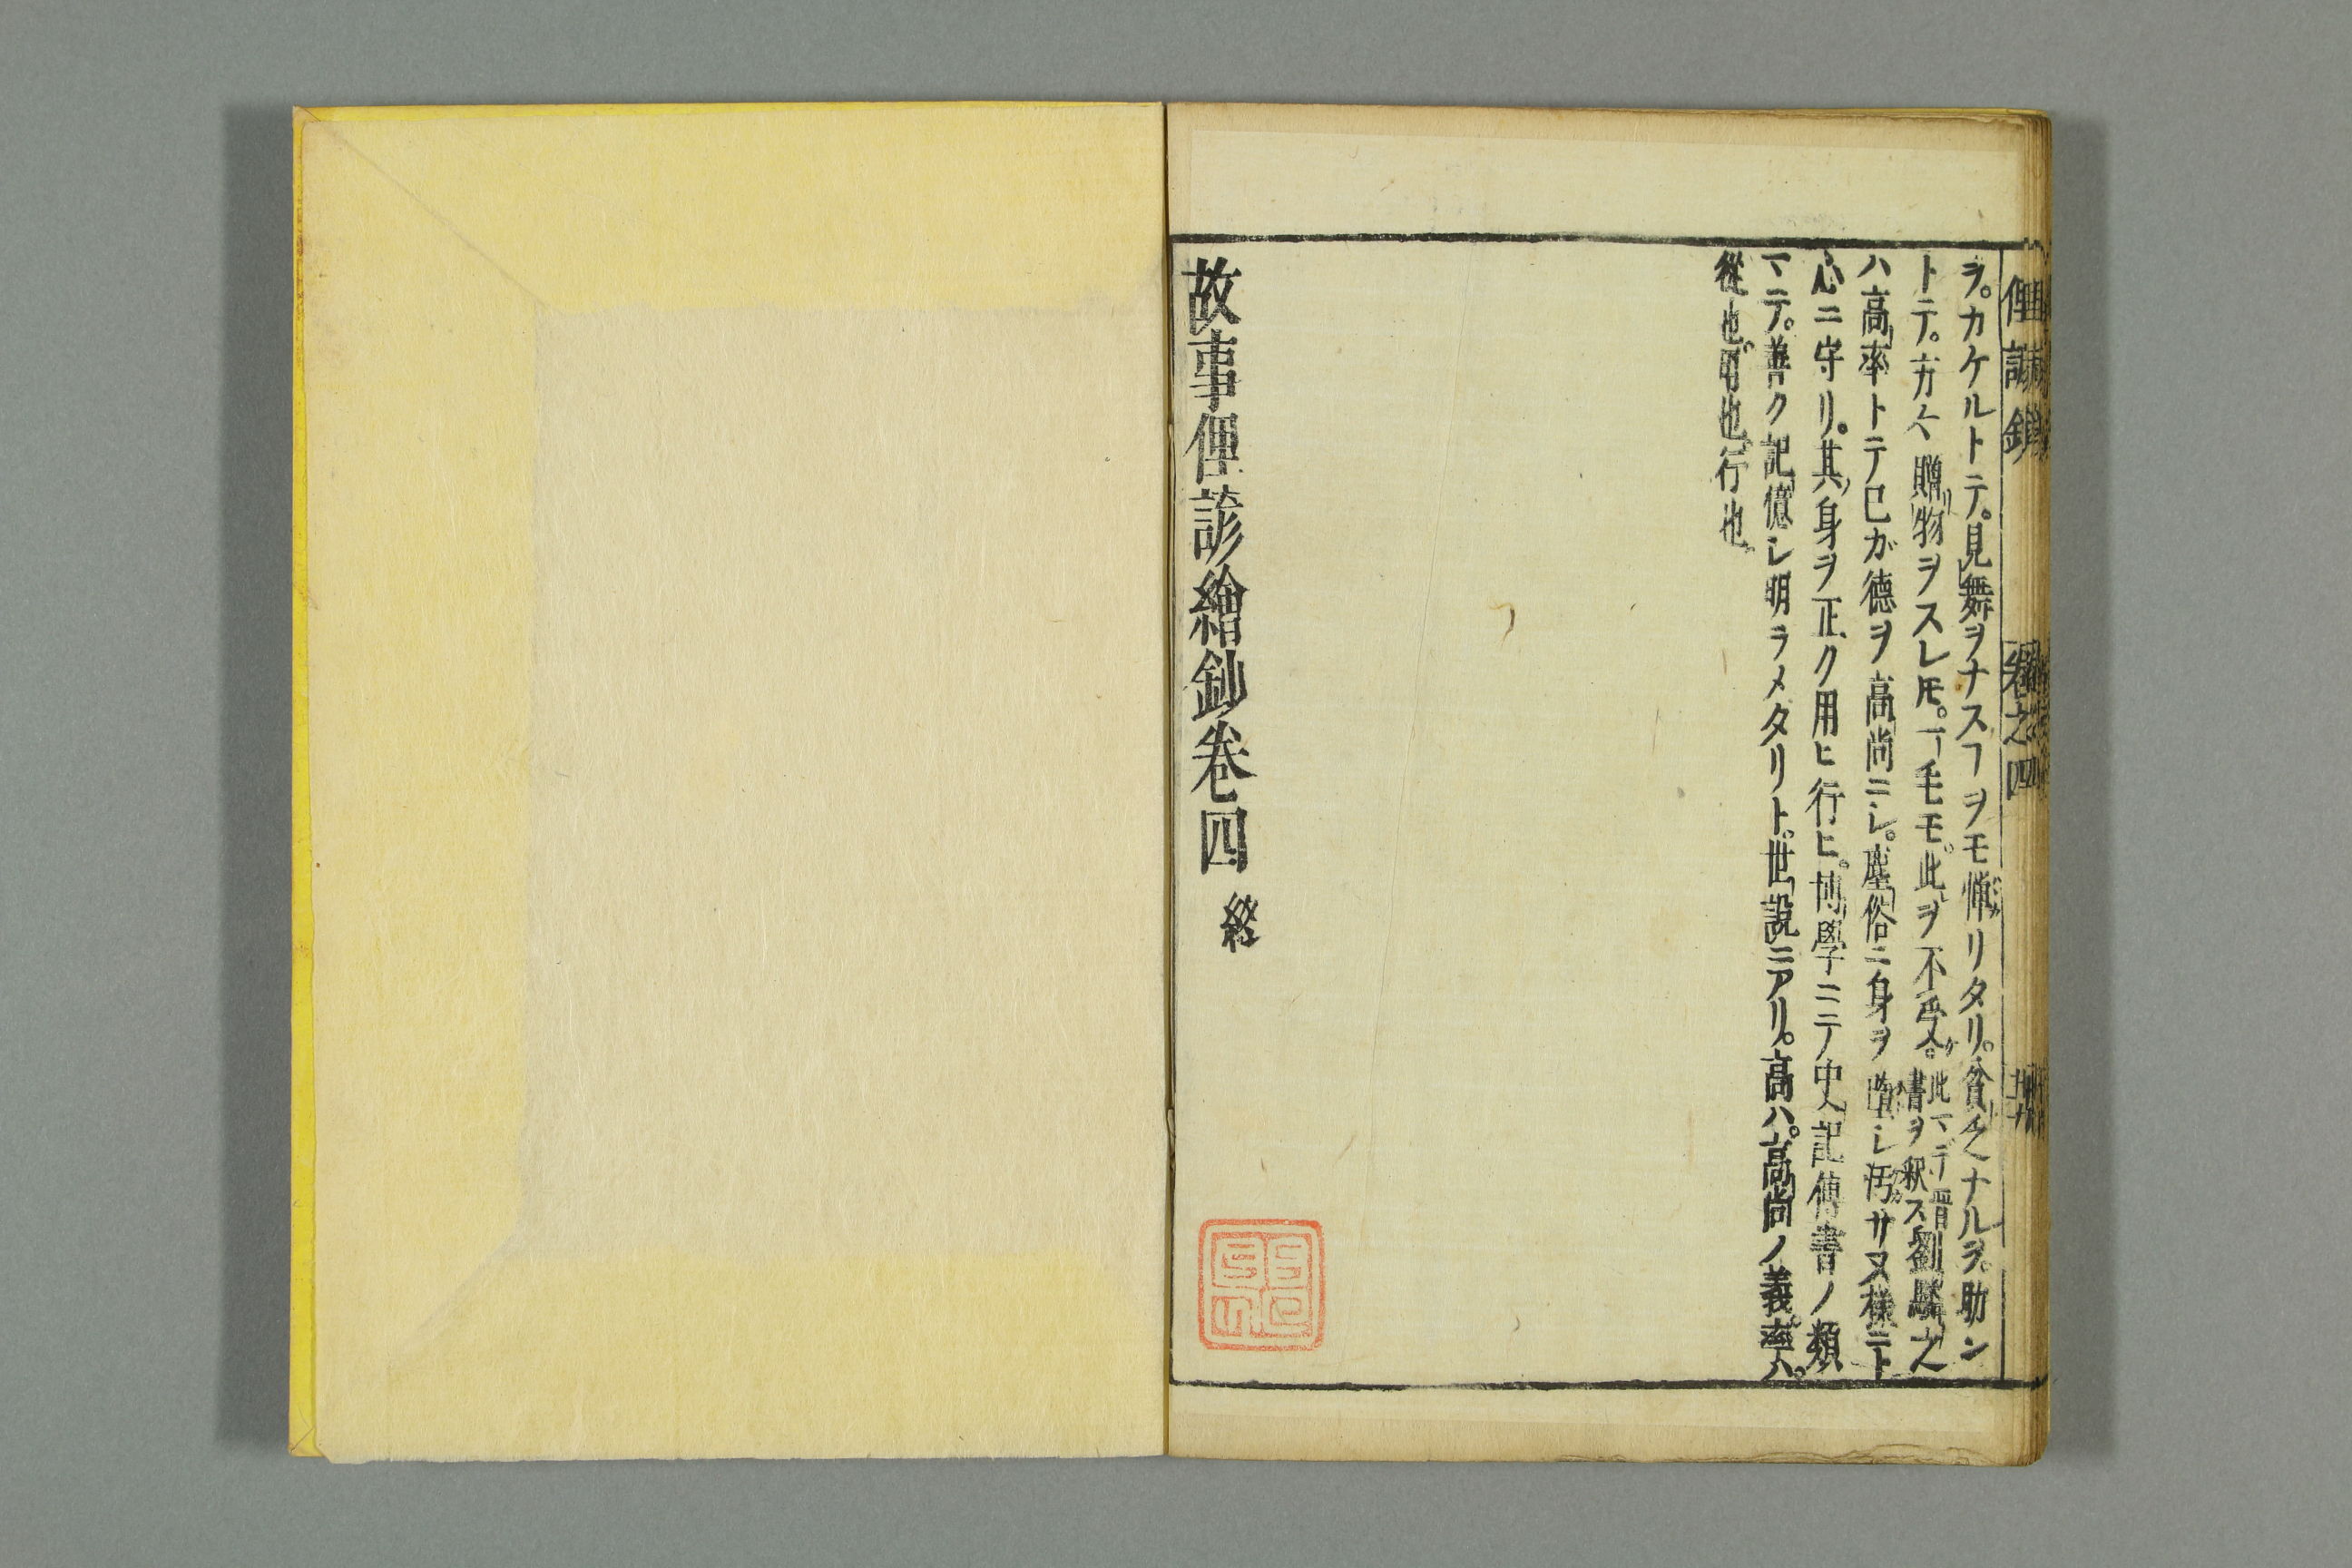 俚諺鈔　卷之四　廿九
ヲ。カケルトテ。見舞ヲナスヿヲモ憚リタリ。貧乏ナルヲ。助ン
トテ。方々贈リ物ヲスレ𪜈。一毛モ。此ヲ不受ケ。
此マテ晋
書ヲ釈ス
劉驎之
ハ高率トテ已ガ德ヲ高尚ニシ。塵俗ニ身ヲ墮シ汚サヌ樣ニト
心ニ守リ。其ノ身ヲ正ク用ヒ行ヒ。博學ニテ史記傳書ノ類
マテ。善ク記憶シ明ラメタリト。世說ニアリ。高ハ。高尚ノ義。率ハ。
從也。用也。行也。
故事俚諺繪鈔卷四　終